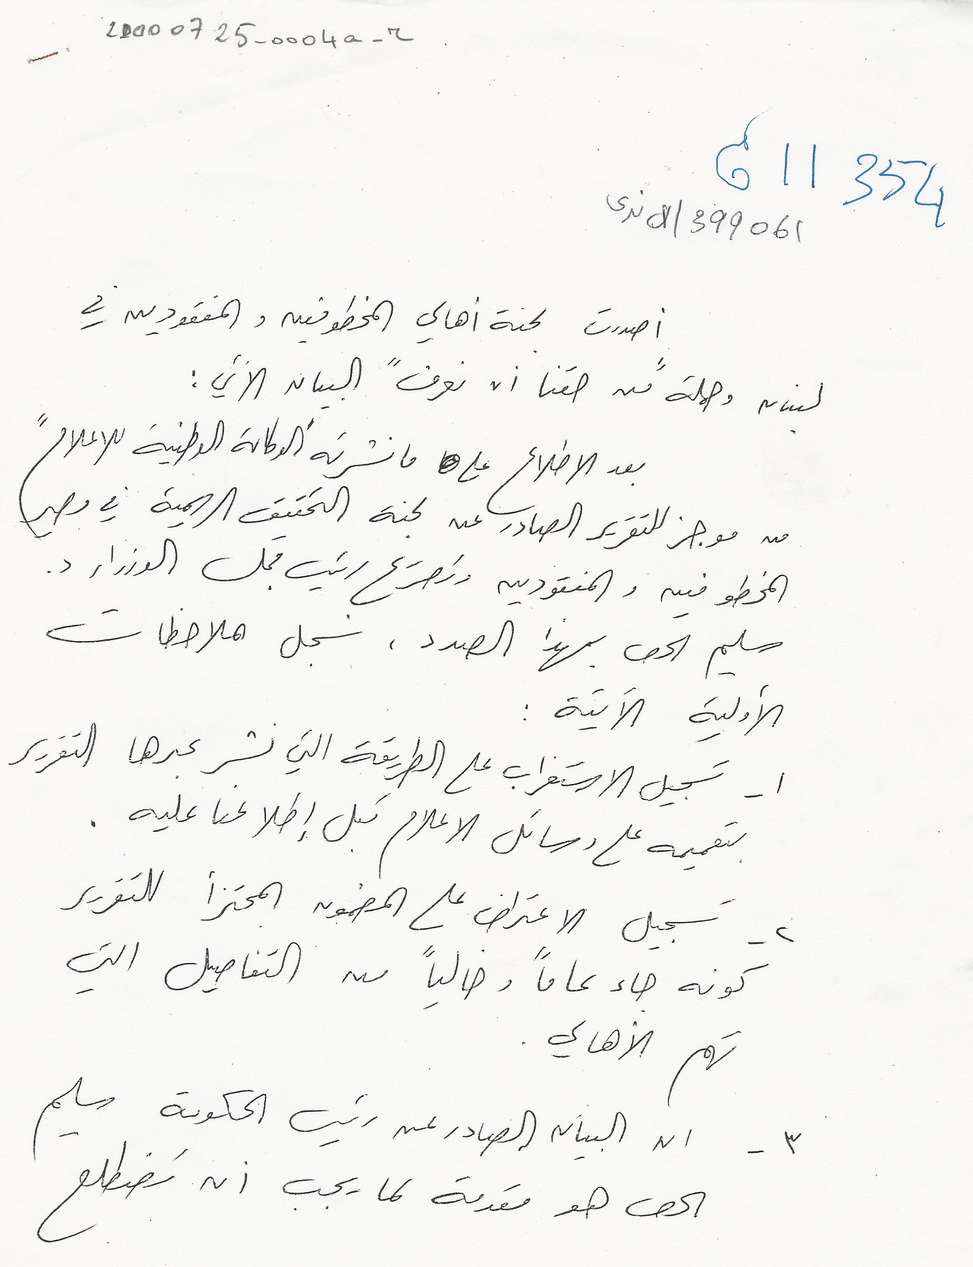 20000725-0004a-r
G 11 354
ندى 01/399061
أصدرت لجنة أهالي المخطوفين و المفقودين في
لبنان وحملة "من حقنا أن نعرف" البيان الآتي :
بعد الاطلاع على ما نشرته "الوكالة الوطنية للاعلام"
من موجز للتقرير الصادر عن لجنة التحقيق الرسمية في مصير
المخطوفين و المفقودين وتصريح رئيس مجلس الوزراء د.
سليم الحص بهذا الصدد ، نسجل ملاحظات
الأولية الآتية :
١ - تسجيل الاستغراب على الطريقة التي نشر عبرها التقرير
بتعميمه على وسائل الاعلام قبل إطلاعنا عليه .
٢ - تسجيل الاعتراض على المضمون المجتزأ للتقرير
كونه جاء عاماً وخالياً من التفاصيل التي
تهم الأهالي .
٣ - ان البيان الصادر عن رئيس الحكومة سليم
الحص هو مقدمة لما يجب أن تضطلع